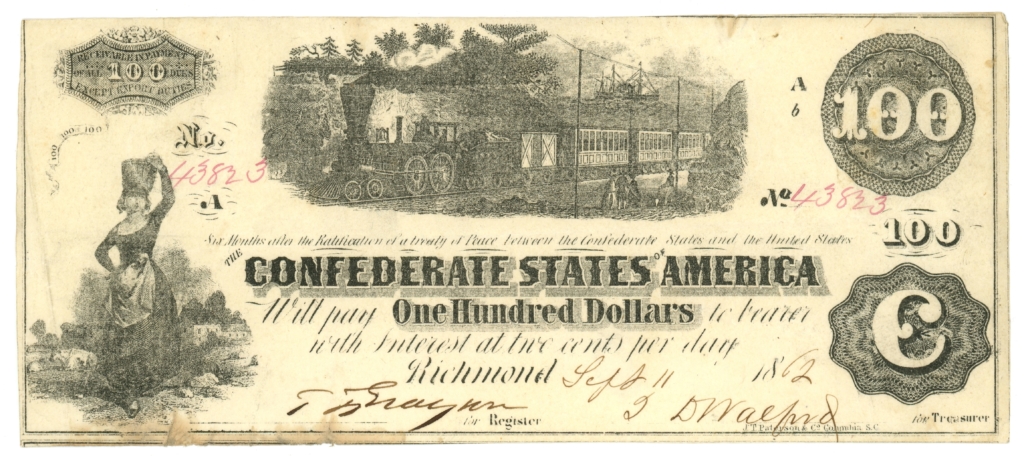 RECEIVABLE IN PAYMENT
OF ALL 100 DUES
EXCEPT EXPORT DUTIES
100 100 100
No.
43823
A
A
b
100
No 43823
100
Six Months after the Ratification of a treaty of Peace between the Confederate States and the United States
THE CONFEDERATE STATES OF AMERICA
Will pay One Hundred Dollars to bearer
with Interest at two cents per day
Richmond Sept 11 1862
C
for Register
for Treasurer
J. T. Paterson & Co Columbia, S.C